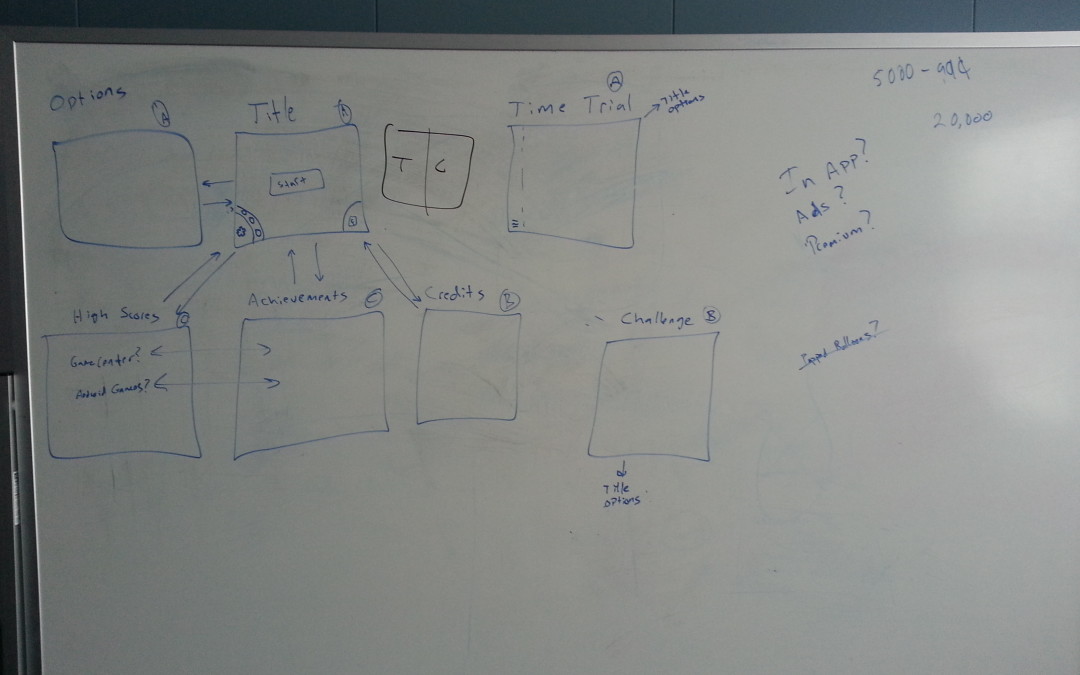 Options
A
Title
A
start
T
C
Time Trial
A
Title
options
5000 - 99¢
20,000
In App?
Ads?
Premium?
High Scores
C
GameCenter?
Android Games?
Achievements
C
Credits
B
Challenge
B
Title
options